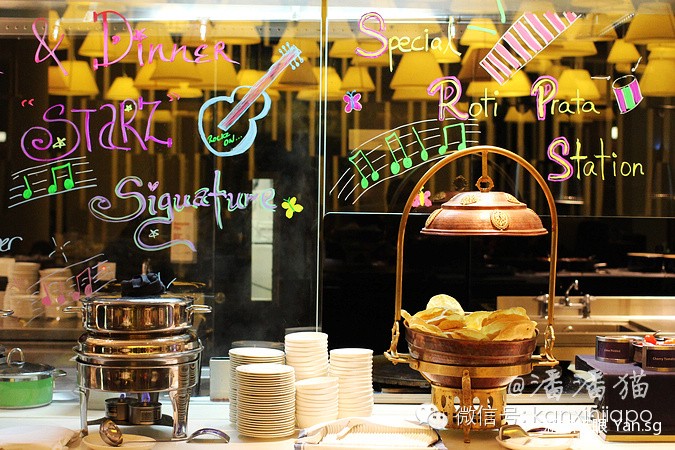 & Dinner
"STARZ"
Signature
ROCKZ
ON...
Special
Roti Prata
Station
@潘潘猫
微信号: kanxinjiapo
Yan.sg